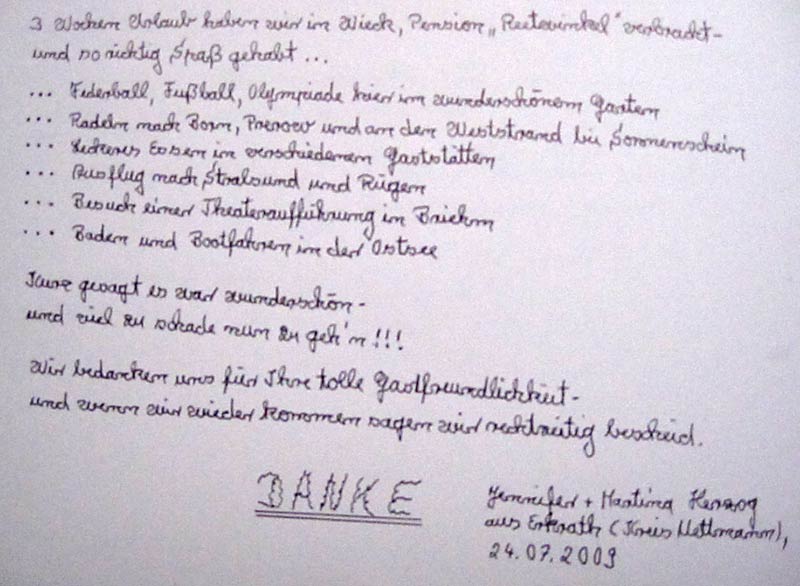 3 Wochen Urlaub haben wir in Wieck, Pension „Reetewinkel" verbracht-
und so richtig Spaß gehabt ...
... Federball, Fußball, Olympiade hier im wunderschönem Garten
... Radeln nach Born, Prerow und an den Weststrand bei Sonnenschein
... leckeres Essen in verschiedenen Gaststätten
... Ausflug nach Stralsund und Rügen
... Besuch einer Theateraufführung in
... Baden und Bootfahren in der Ostsee
Kurz gesagt es war wunderschön-
und viel zu schade nun zu geh'n!!!
Wir bedanken uns für Ihre tolle Gastfreundlichkeit-
und wenn wir wieder kommen sagen wir rechtzeitig bescheid.
DANKE
Jennifer + Martina Herzog
aus Erkrath (Kreis Mettmann),
24.07.2009